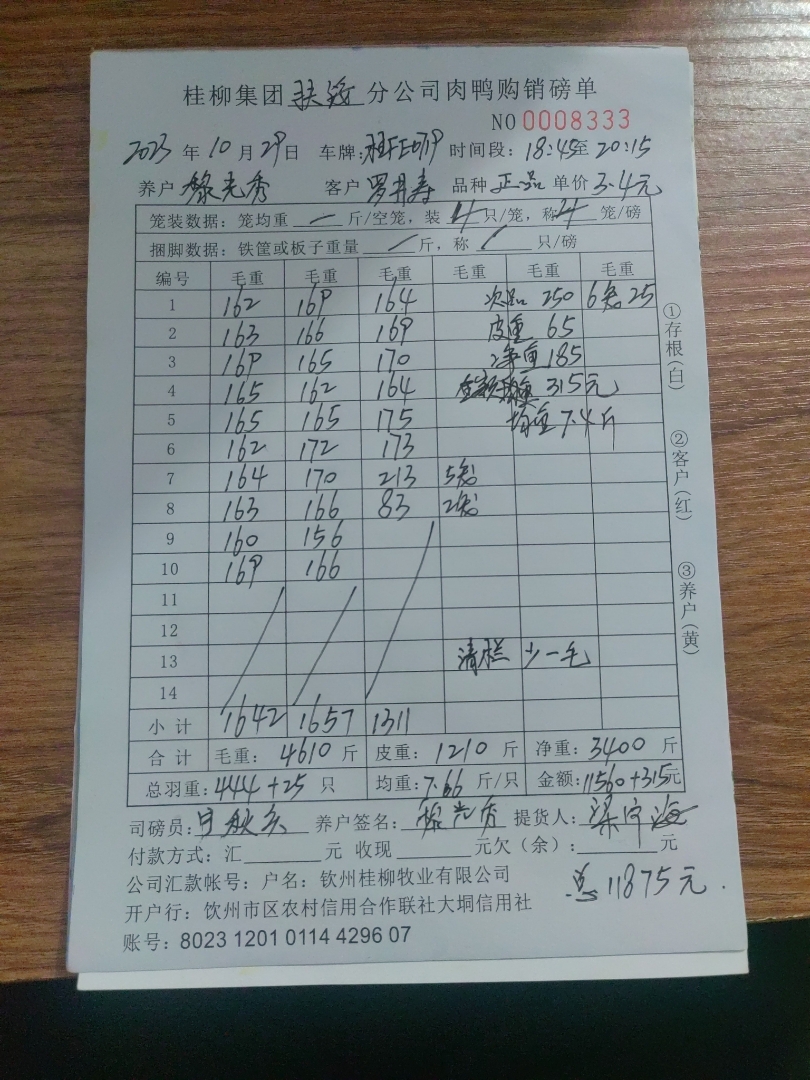 桂柳集团扶绥分公司肉鸭购销磅单
NO 0008333
2023年10月29日 车牌: 时间段:18:45至20:15
养户黎光秀 客户罗月寿 品种正品 单价3.4元
笼装数据:笼均重 — 斤/空笼,装4只/笼,称4笼/磅
捆脚数据:铁筐或板子重量 / 斤,称 / 只/磅
编号 毛重 毛重 毛重 毛重 毛重 毛重
1 162 169 164 次品 250 6笼 25
2 163 166 169 皮重 65
3 169 165 170 净重 185
4 165 162 164 315元
5 165 165 175 均重 7.4斤
6 162 172 173
7 164 170 213 5笼
8 163 166 83 2笼
9 160 156
10 169 166
11
12
13 清栏 少一毛
14
小计 1642 1657 1311
合计 毛重:4610斤 皮重:1210斤 净重:3400斤
总羽重:444+25只 均重:7.66斤/只 金额:11560+315元
司磅员: 养户签名:黎光秀 提货人:梁守海
付款方式:汇 元 收现 元欠(余): 元
公司汇款帐号:户名:钦州桂柳牧业有限公司
总11875元.
开户行:饮州市区农村信用合作联社大垌信用社
账号:8023 1201 0114 4296 07
①存根(白)
②客户(红)
③养户(黄)